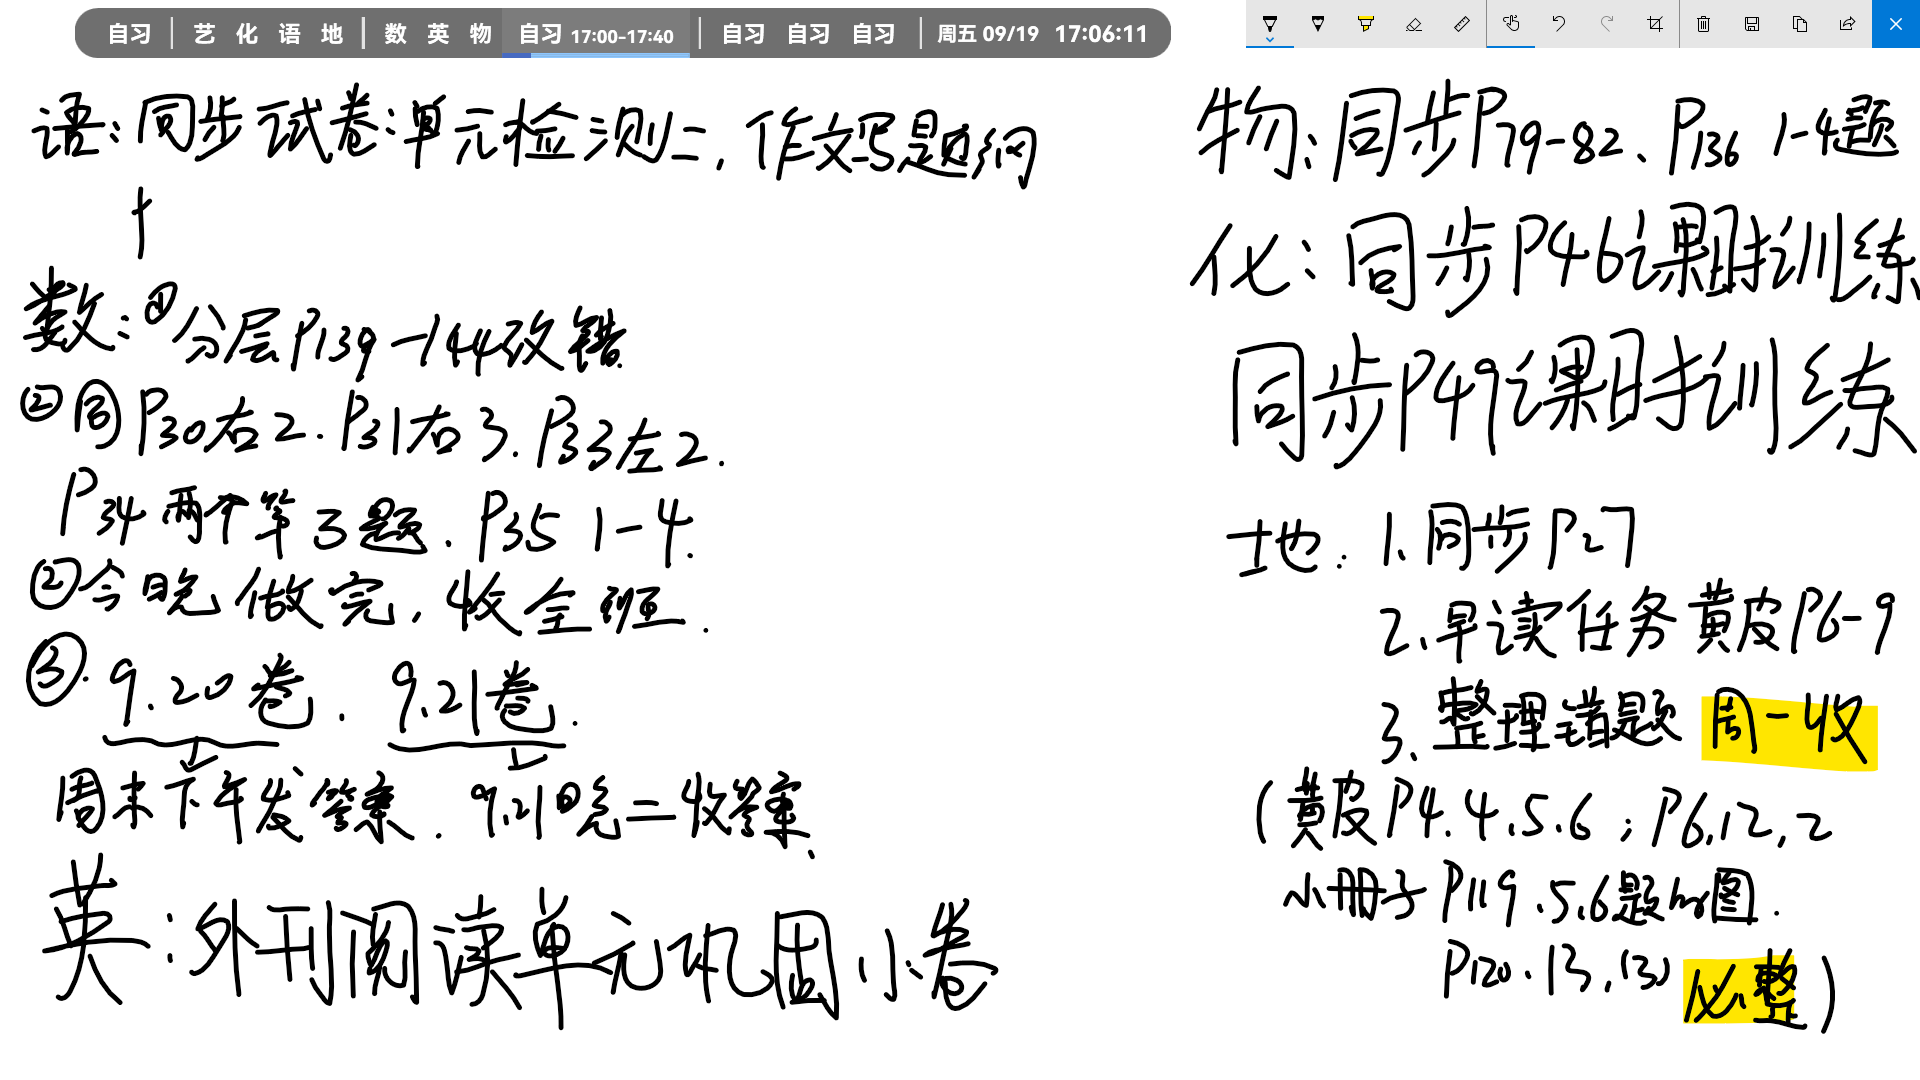 自习 | 艺 化 语 地 | 数 英 物 自习 17:00-17:40 | 自习 自习 自习 | 周五 09/19 17:06:11
语:同步试卷:单元检测二,作文写题纲
数:①分层P139-144改错.
②同P30右2.P31右3.P33左2.
P34两个第3题.P35 1-4.
②今日晚做完,收全班.
③.9.20卷.9.21卷.
周末下午发答案.9.21日晚二收答案.
英:外刊阅读单元巩固小卷
物:同步P79-82、P136 1-4题
化:同步P46课时训练
同步P49课时训练
地:1、同步P27
2、早读任务黄皮P6-9
3、整理错题 周一收
(黄皮P4.4.5.6;P6.12,2
小册子P119.5.6题图.
P120.13,(3) 必整)